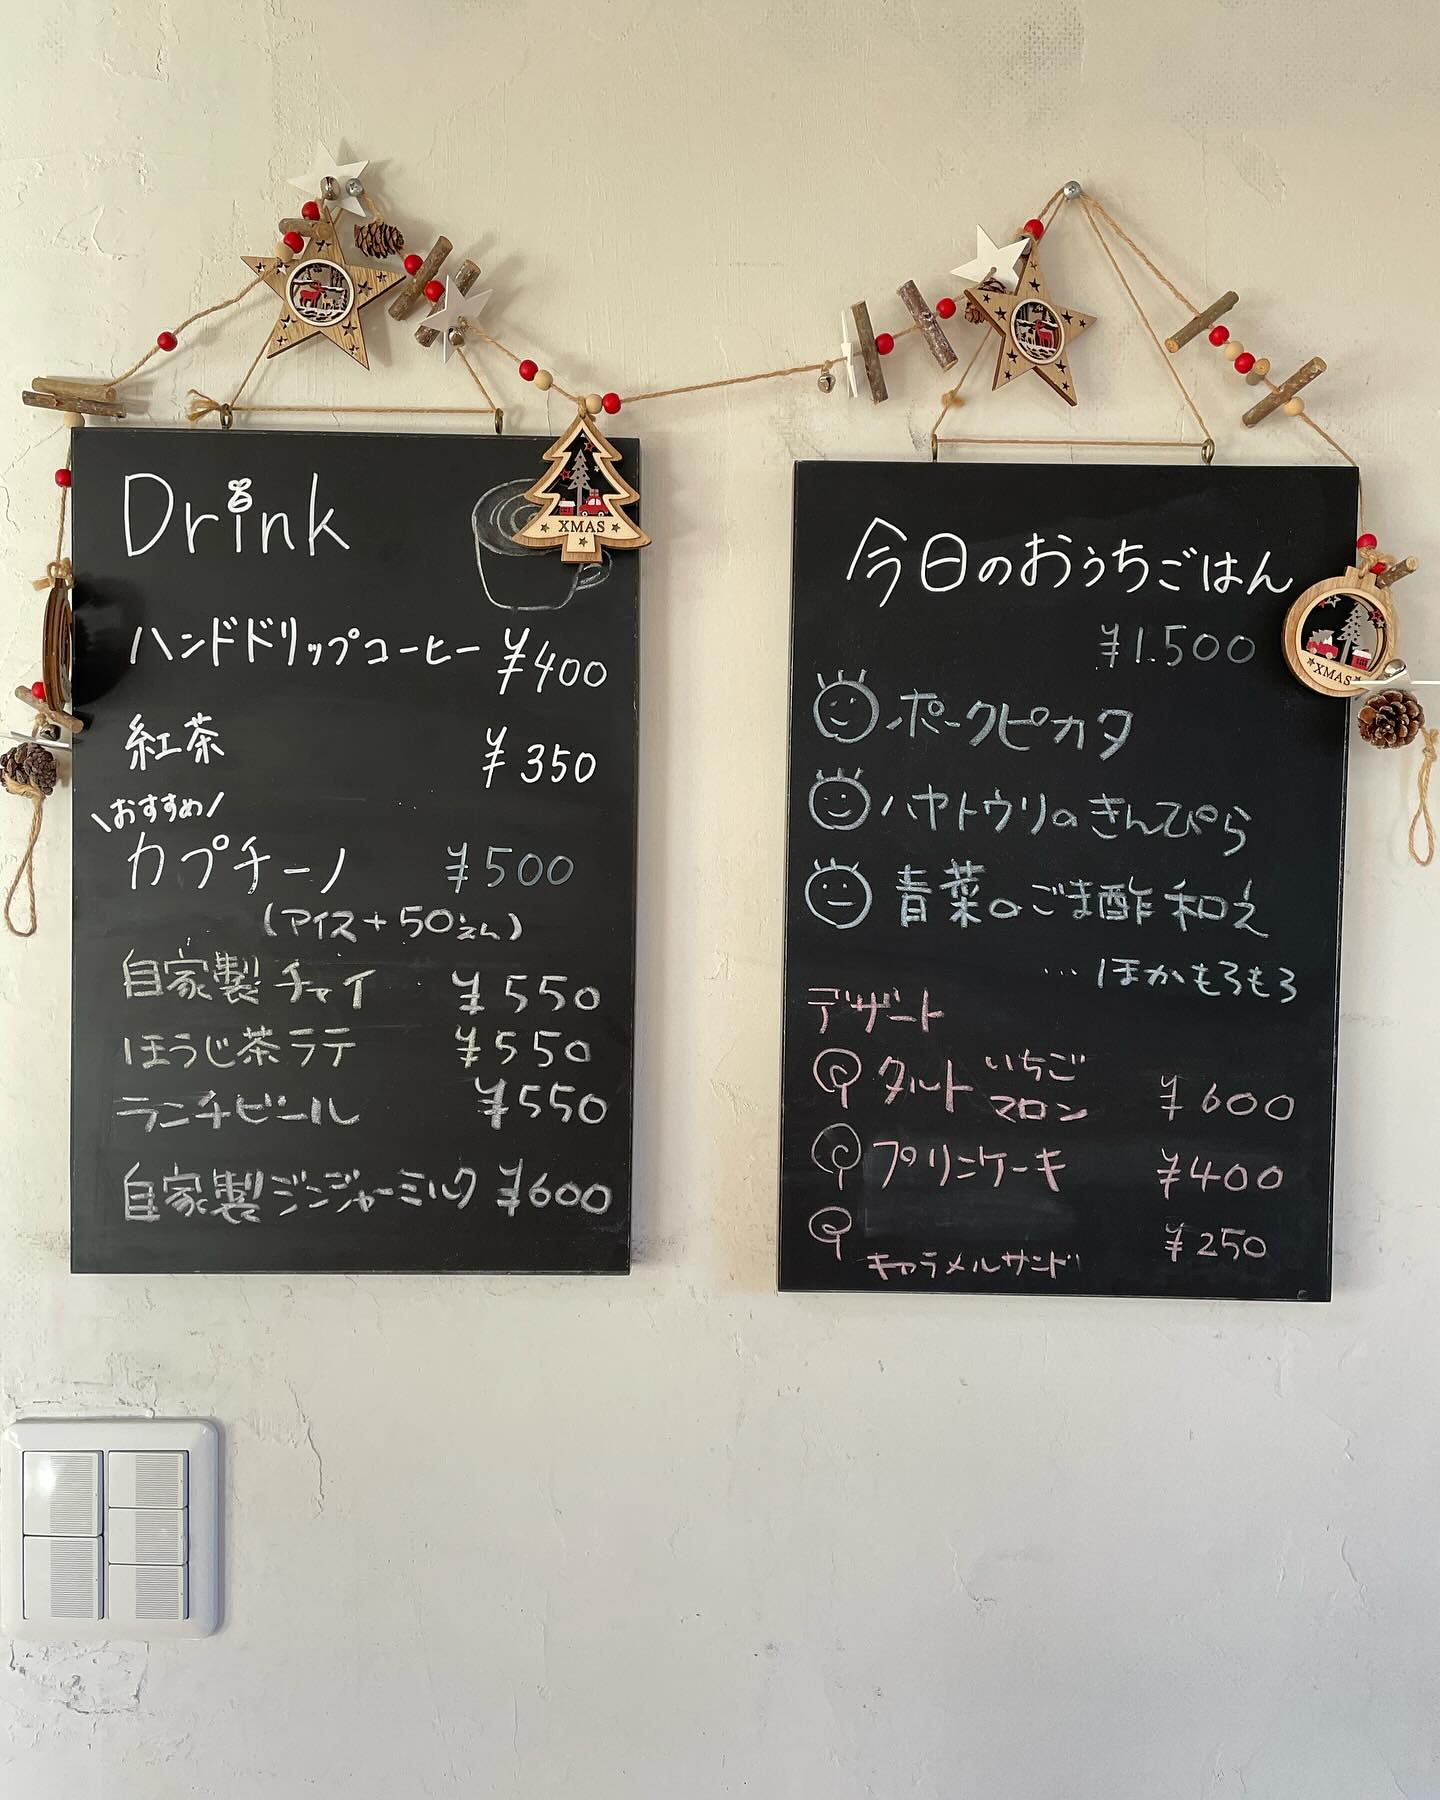 Drink
XMAS
ハンドドリップコーヒー ¥400
紅茶 ¥350
\おすすめ/
カプチーノ ¥500
(アイス+50えん)
自家製チャイ ¥550
ほうじ茶ラテ ¥550
ランチビール ¥550
自家製ジンジャーミルク ¥600
今日のおうちごはん
¥1.500
XMAS
ポークピカタ
ハヤトウリのきんぴら
青菜のごま酢和え
…ほかもろもろ
デザート
タルト いちご
マロン ¥600
プリンケーキ ¥400
キャラメルサンド ¥250